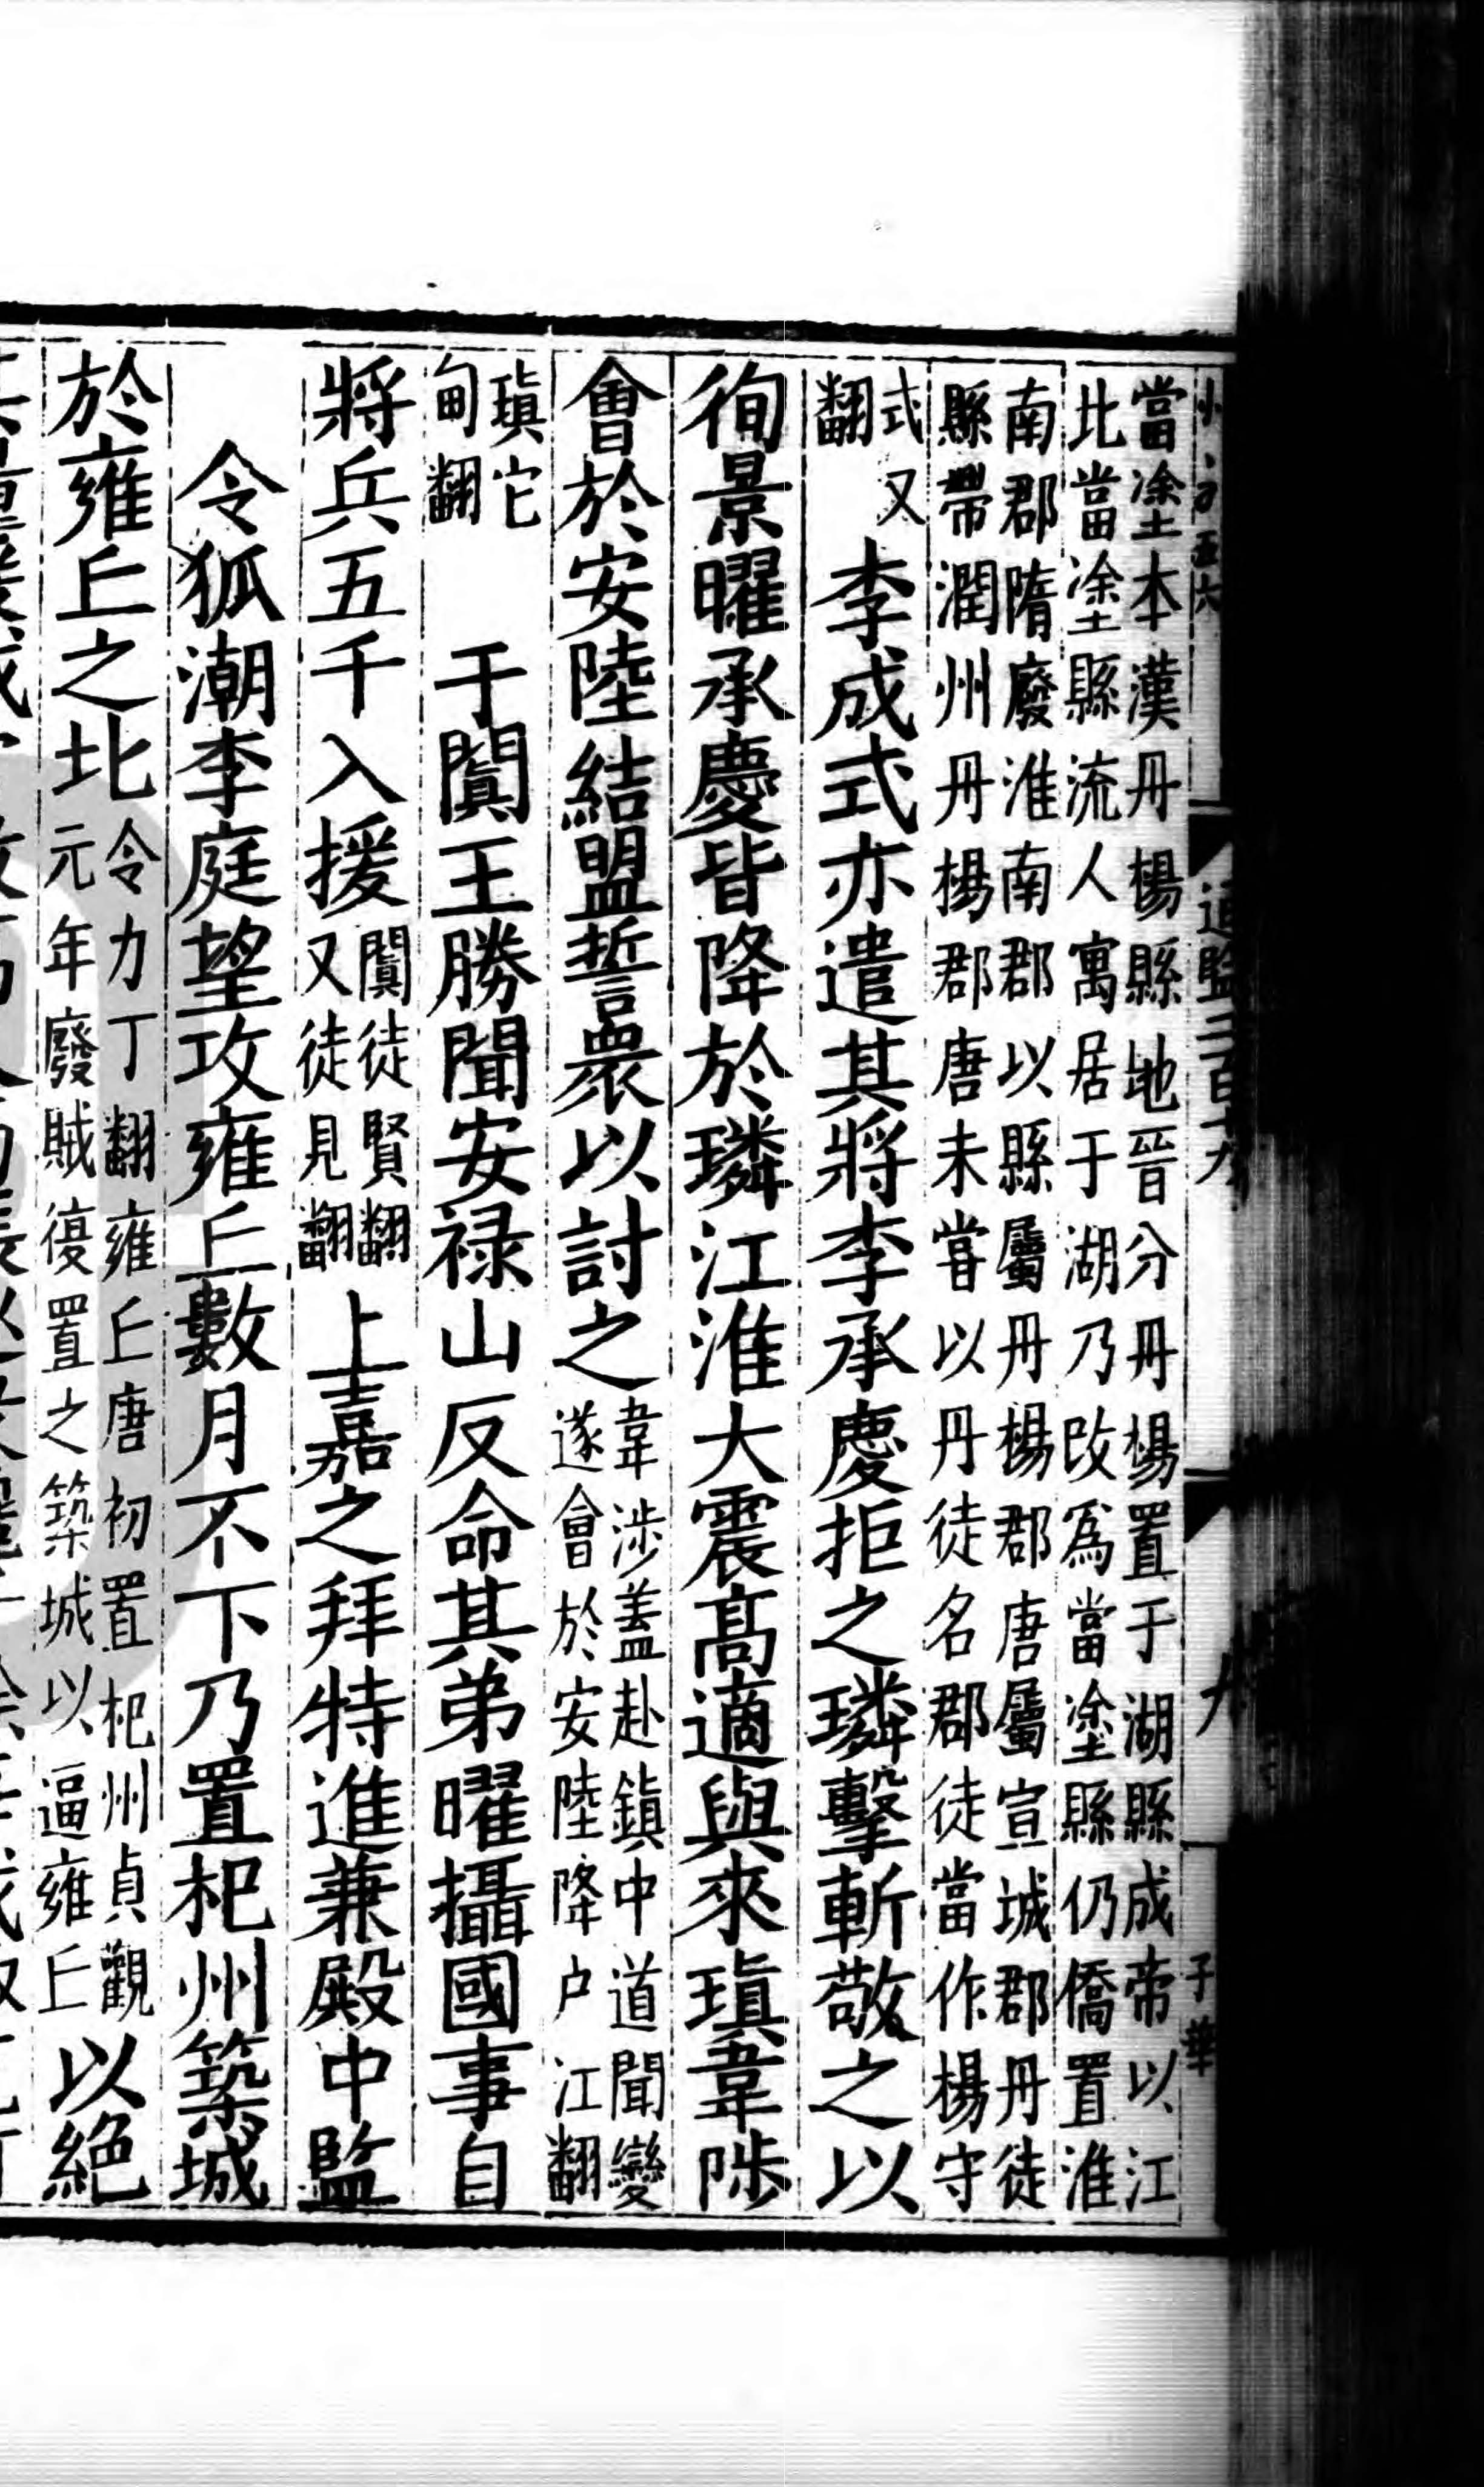 當塗本漢丹楊縣地晉分丹楊置于湖縣成帝以江
北當塗縣流人寓居于湖乃改爲當塗縣仍僑置淮
南郡隋廢淮南郡以縣屬丹楊郡唐屬宣城郡丹徒
縣帶潤州丹楊郡唐未嘗以丹徒名郡徒當作楊守
式又
翻
李成式亦遣其將李承慶拒之璘擊斬敬之以
徇景曜承慶皆降於璘江淮大震高適與來瑱韋陟
會於安陸結盟誓衆以討之
韋涉蓋赴鎮中道聞變
遂會於安陸降户江翻
瑱它
甸翻
于闐王勝聞安禄山反命其弟曜攝國事自
將兵五千入援
闐徒賢翻
又徒見翻
上嘉之拜特進兼殿中監
令狐潮李庭望攻雍丘數月不下乃置杞州築城
於雍丘之北
令力丁翻雍丘唐初置杞州貞觀
元年廢賊復置之築城以逼雍丘
以絶